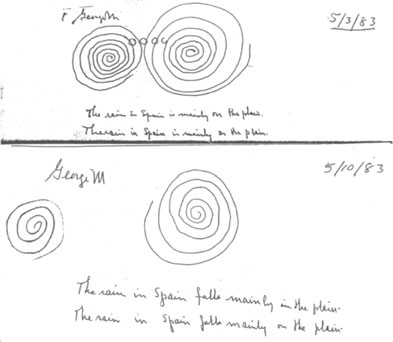 George M 5/3/83
The rain in Spain is mainly on the plain.
The rain in Spain is mainly on the plain
George M 5/10/83
The rain in Spain falls mainly in the plain.
The rain in Spain falls mainly on the plain.